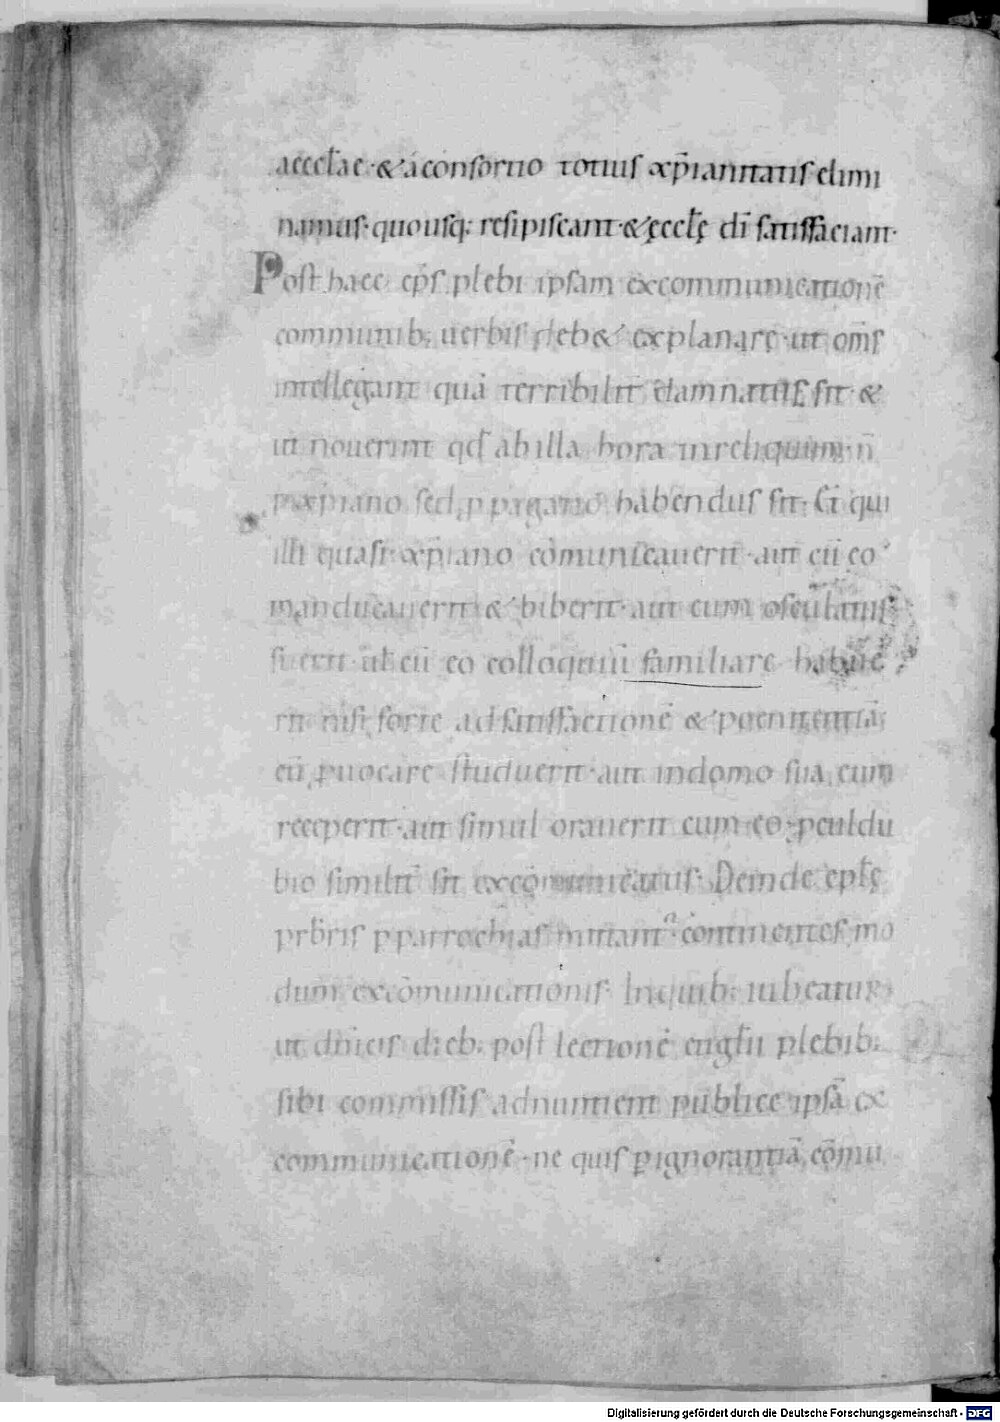 aeccl̄ae · & a consortio totius xp̄ianitatis elimi
namus · quousq; resipiscant · & ęccl̄ę dī satisfaciant ·
Post haec ep̄s plebi ipsam excommunicationē
communib; uerbis deb& explanare · ut om̄s
intellegant quā terribilit̄ damnatus sit · &
ut nouerint qd̄ ab illa hora in reliquum · n̄
p xp̄iano sed p pagano habendus sit · Et qui
illi quasi xp̄iano cōmunicauerit · aut cū eo
manducauerit & biberit · aut eum osculatus
fuerit ul̄ cū eo colloquiū familiare habue
rit nisi forte ad satisfactionē & poenitentiā
eū puocare studuerit · aut in domo sua eum
receperit · aut simul orauerit cum eo · pculdu
bio similit̄ sit excōmunicatus · Deinde epl̄ę
prb̄ris p parrochias mittant̄ · continentes mo
dum excōmunicationis · In quib; iubeatur
ut dn̄icis dieb; post lectionē euglīi plebib;
sibi commissis adnuntient publice ipsā ex
communicationē · ne quis p ignorantiā cōmu
Digitalisierung gefördert durch die Deutsche Forschungsgemeinschaft - DFG